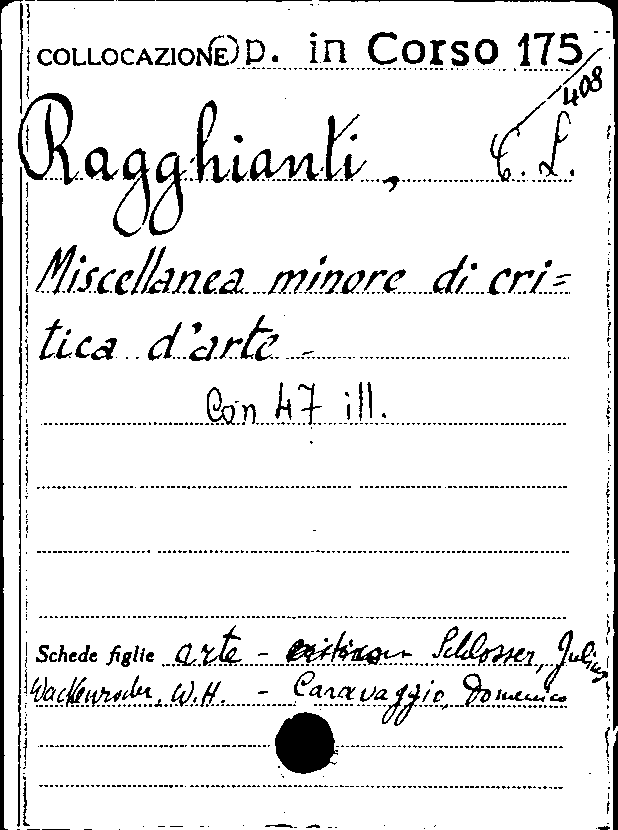 COLLOCAZIONE Op. in Corso 175
408
Ragghianti, C. L.
Miscellanea minore di cri=
tica d'arte -
Con 47 ill.
Schede figlie arte - critica - Schlosser, Julius
Wackenroder, W.H. - Caravaggio, Domenico